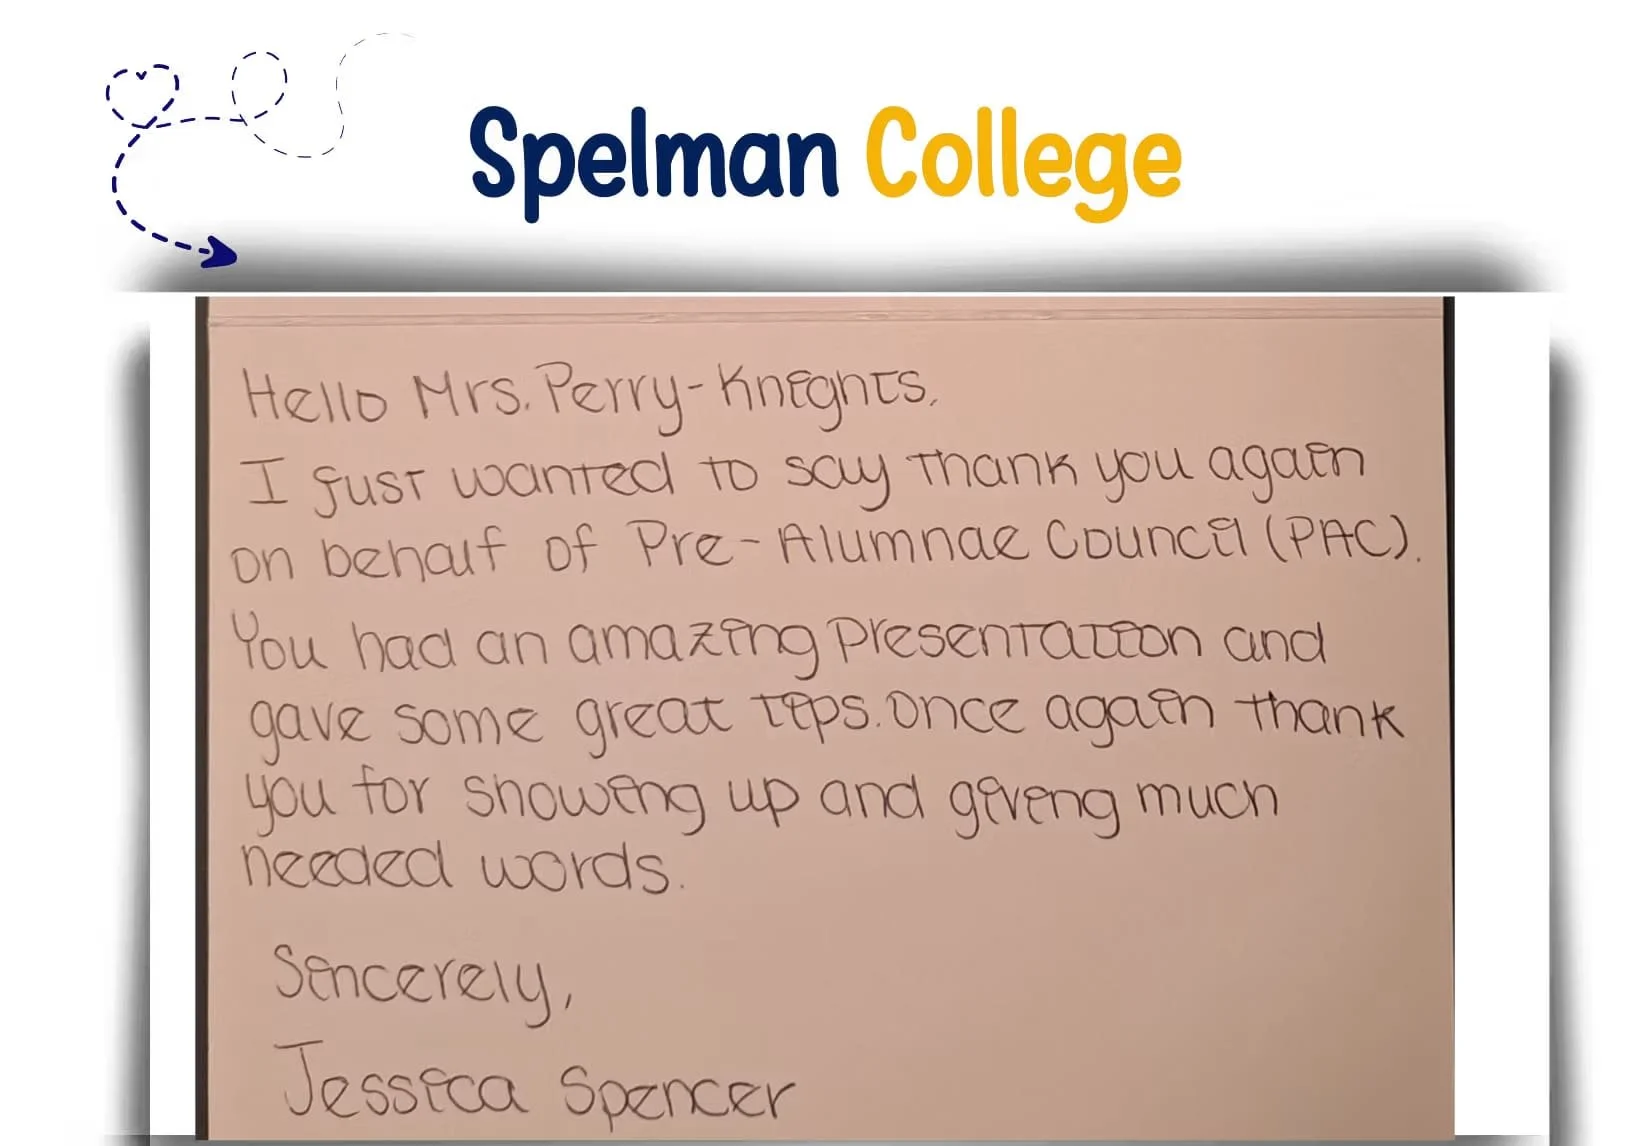 Spelman College
Hello Mrs. Perry-Knights,
I just wanted to say thank you again
on behalf of Pre-Alumnae Council (PAC).
You had an amazing presentation and
gave some great tips. Once again thank
you for showing up and giving much
needed words.
Sincerely,
Jessica Spencer